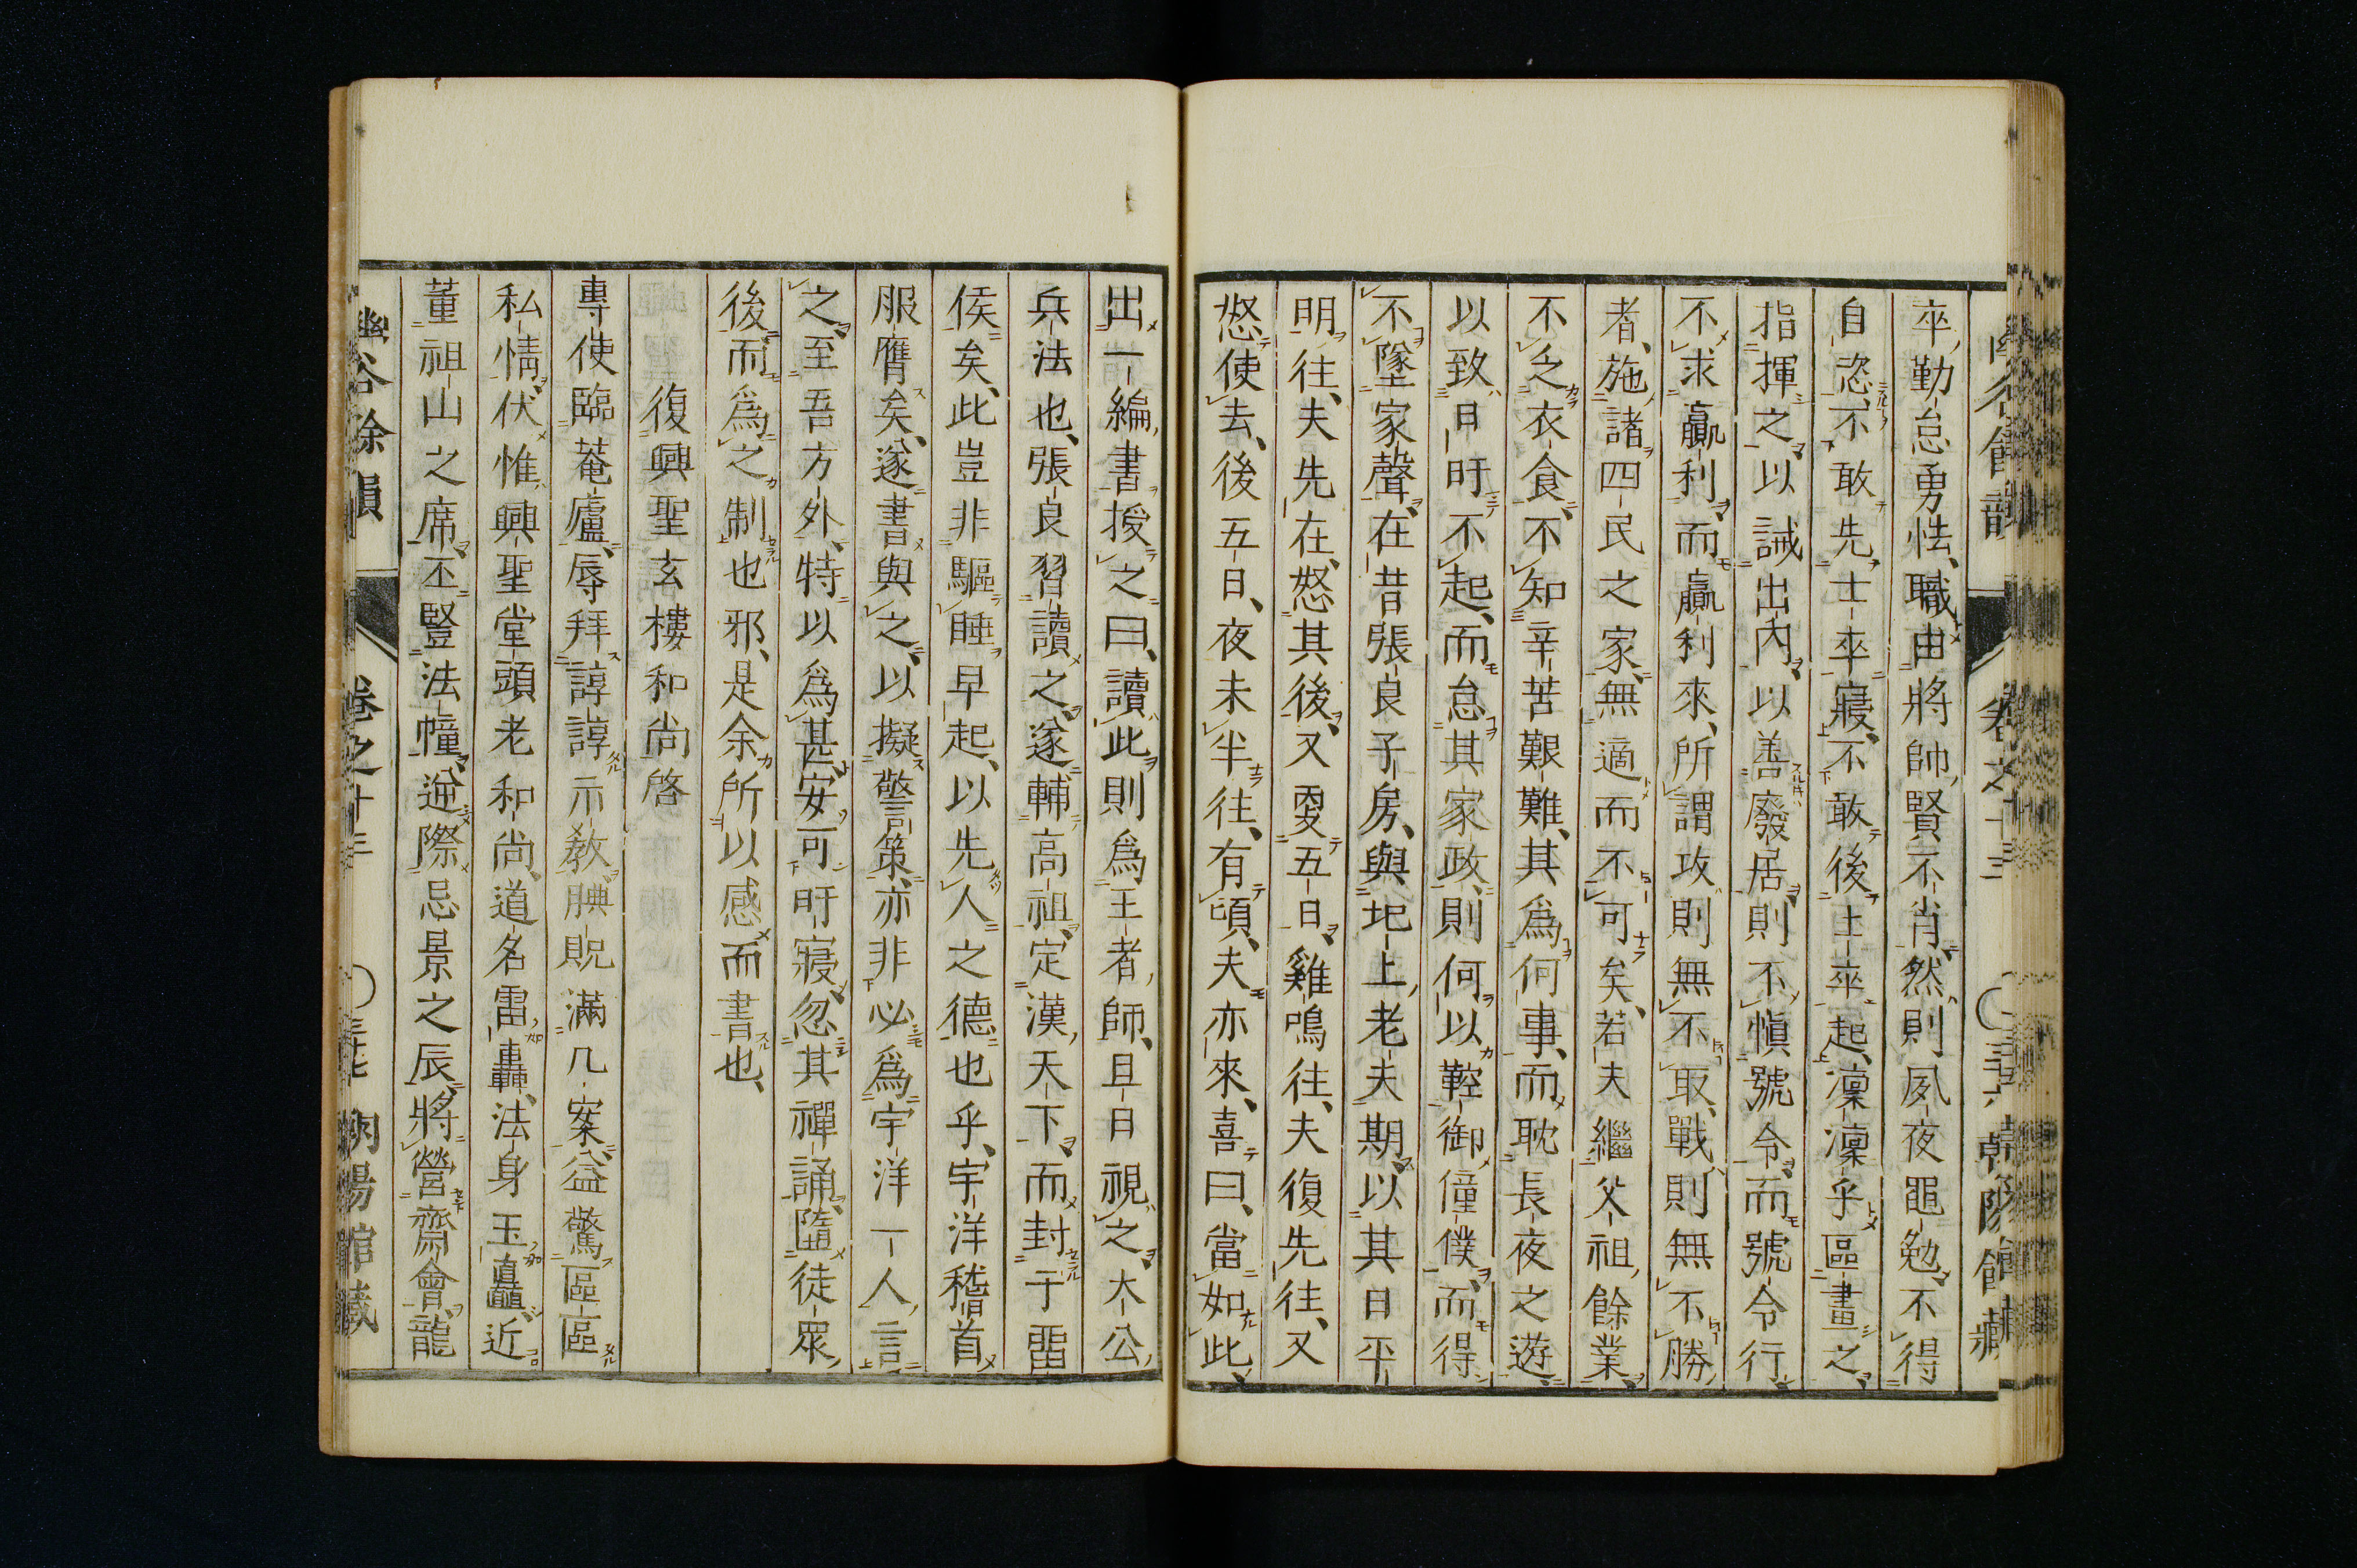 卒勤怠勇怯職由將帥賢不肖然則夙夜黽勉不得
自恣不敢先士卒寢不敢後士卒起凜凜乎區畫之
指揮之以誡出內以善廢居則不愼號令而號令行
不求贏利而贏利來所謂攻則無不取戰則無不勝
者施諸四民之家無適而不可矣若夫繼父祖餘業
不乏衣食不知辛苦艱難其爲何事而耽長夜之遊
以致日旰不起而怠其家政則何以鞚御僮僕而得
不墜家聲在昔張良子房與圯上老夫期以其日平
明往夫先在怒其後又要五日雞鳴往夫復先往又
怒使去後五日夜未半往有頃夫亦來喜曰當如此
出一編書授之曰讀此則爲王者師且日視之太公
兵法也張良習讀之遂輔高祖定漢天下而封于畱
侯矣此豈非驅睡早起以先人之德也乎宇洋稽首
服膺矣遂書與之以擬警策亦非必爲宇洋一人言
之至吾方外特以爲甚安可旰寢忽其禪誦隨徒衆
後而爲之制也邪是余所以感而書也
復興聖玄樓和尚啓
專使臨菴廬辱拜諄諄示教腆貺滿几案益驚區區
私情伏惟興聖堂頭老和尚道名雷轟法身玉矗近
董祖山之席丕豎法幢迎際忌景之辰將營齋會龍
幽谷餘韻 卷之十三 三十七 朝陽館藏